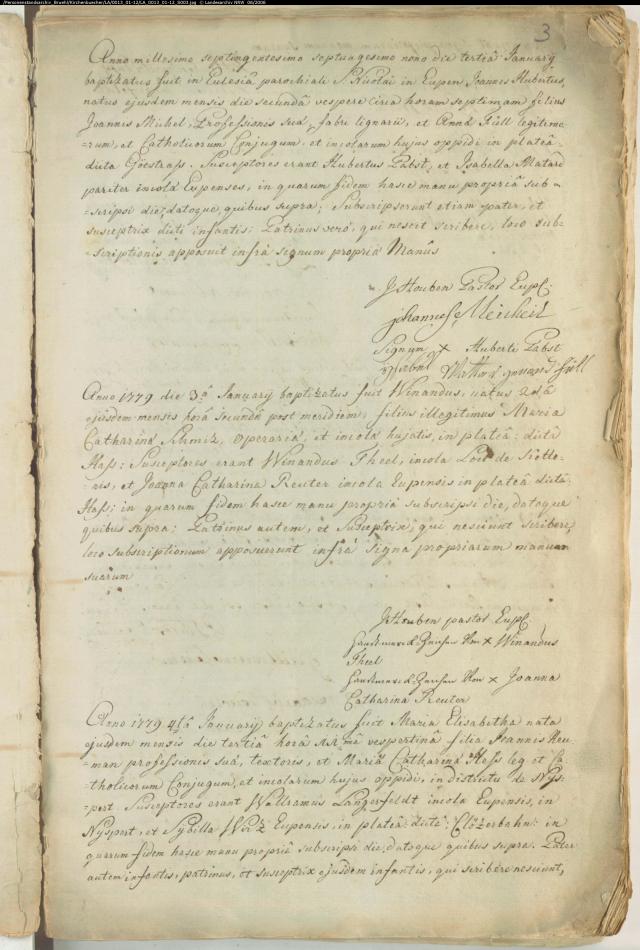 /Personenstandsarchiv_Bruehl/Kirchenbuecher/LA/0013_01-12/LA_0013_01-12_S003.jpg © Landesarchiv NRW 06/2006
3
Anno millesimo septingentesimo septuagesimo nono die tertiâ January
baptizatus fuit in Ecclesiâ parochiali S Nicolai in Eupen Joannes Hubertus,
natus ejusdem mensis die secundâ vespere circa horam septimam filius
Joannis Michel, Professionis suâ, fabri lignarii, et Anna Füll legitimo=
=rum, et Catholicorum Conjugum, et incolarum hujus oppidi in plateâ
dicta Göestrass. Susceptores erant Hubertus Pabst, et Isabella Matard
pariter incolâ Eupenses, in quarum fidem hasce manu propriâ sub=
=scripsi die, datoque, quibus supra; Subscripserunt etiam pater, et
susceptrix dicti infantis; Patrinus verò, qui nescit scribere, loco sub=
=scriptionis apposuit infrà signum propriâ Manûs
J Houben Pastor Eup:
johannes
Signum × Huberti Pabst
Anno 1779 die 3â January baptizatus fuit Winandus, natus 2dâ
ejusdem mensis horâ secundâ post meridiem, filius illegitimus Maria
Catharina Schmiz, operaria, et incola hujatis, in plateâ: dictâ
Hass: Susceptores erant Winandus Theel, incola Loci de Kette=
=nis, et Joanna Catharina Reuter incola Eupensis in plateâ dictâ
Hass; in quarum fidem hasce manu propriâ subscripsi die, datoque
quibus supra; Patrinus autem, et Susceptrix, qui nesciunt scribere,
loco subscriptionum apposuerunt infrà Signa propriarum manuum
suarum
J Houben pastor Eup:
× Winandus
Theel
× Joanna
Catharina Reuter
Anno 1779 4tâ January baptizata fuit Maria Elisabetha nata
ejusdem mensis die tertiâ horâ vespertinâ filia Joannis Heu=
=man professionis suâ, textores, et Maria Catharina Hess leg et Ca=
=tholicorum Conjugum, et incolarum hujus oppidi, in districtu de Nys=
=pert. Susceptores erant Wallramus Langerfeldt incola Eupensis, in
Nyspert, et Sybilla Wirz Eupensis, in plateâ: dictâ: Clözerbahn: in
quarum fidem hasce manu propriâ subscripsi die, datoque quibus supra. Pater
autem infantis, patrinus, et susceptrix ejusdem infantis, qui scribere nesciunt,